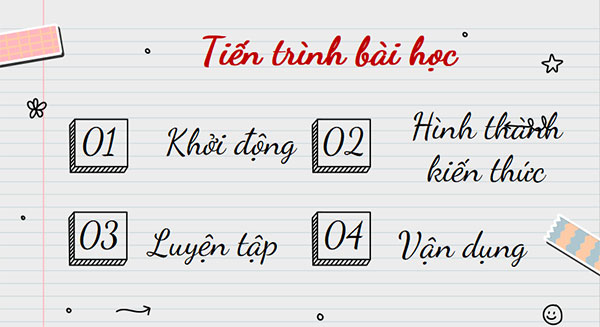 Tiến trình bài học
01 Khởi động
02 Hình thành
kiến thức
03 Luyện tập
04 Vận dụng